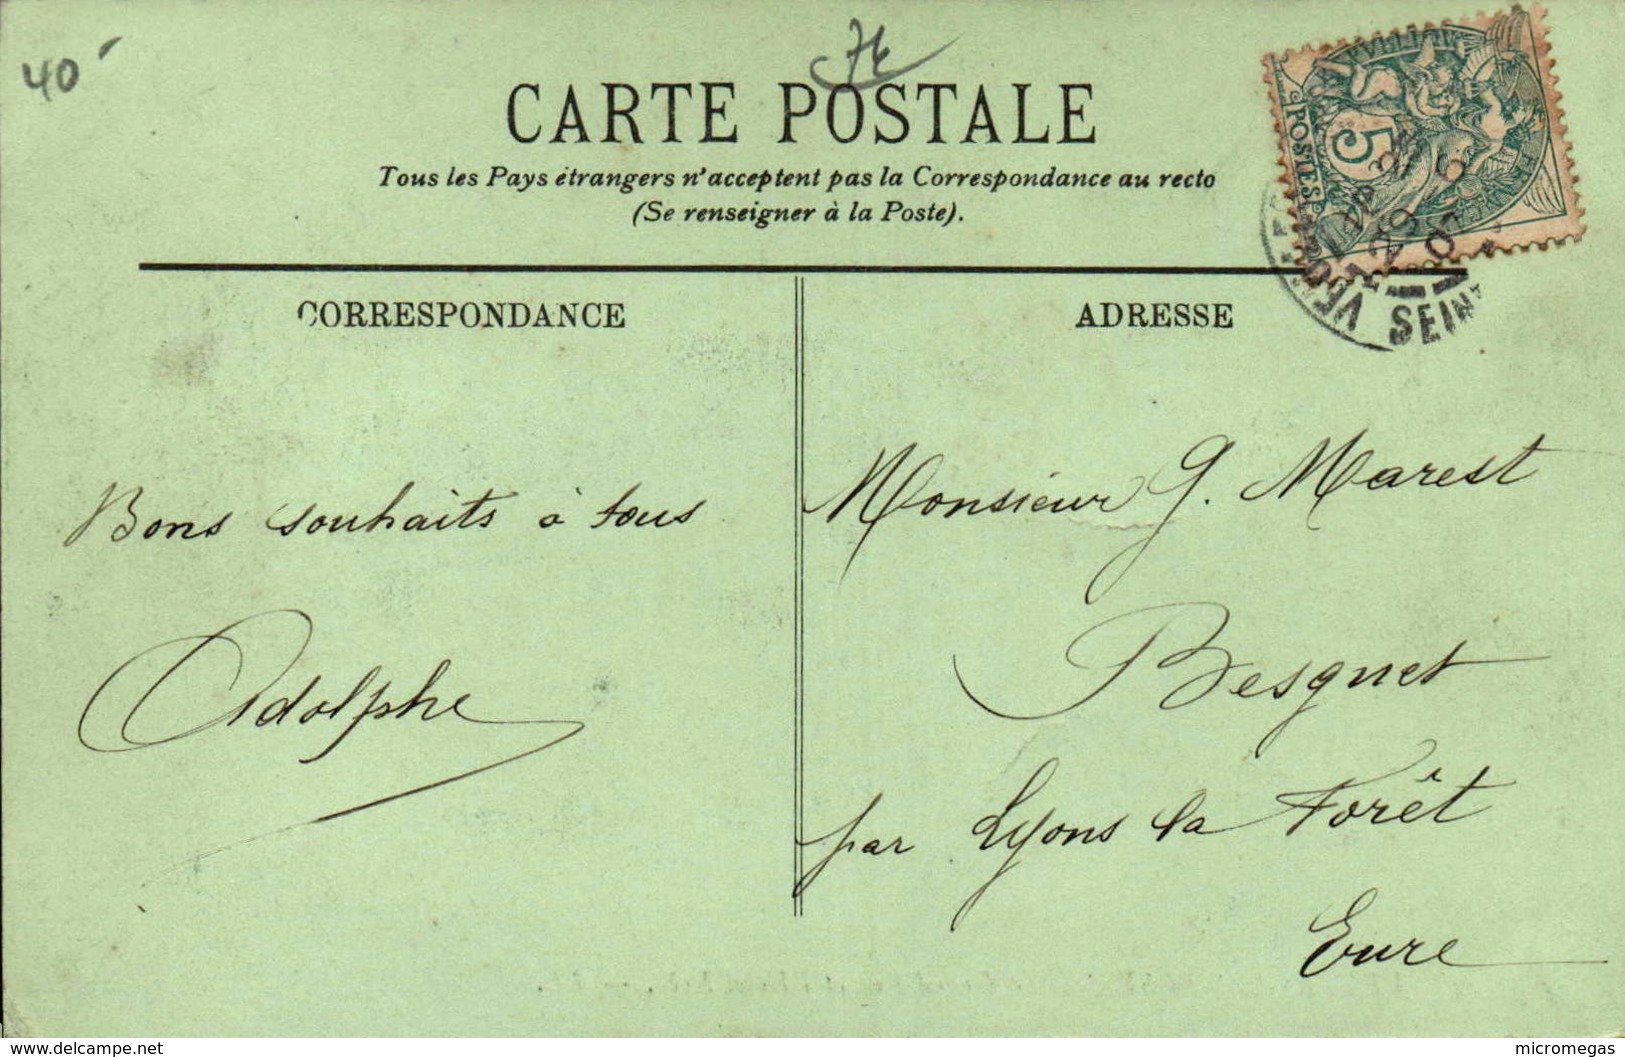 40
76
CARTE POSTALE
Tous les Pays étrangers n'acceptent pas la Correspondance au recto
(Se renseigner à la Poste).
POSTES
5
SEINE
CORRESPONDANCE
ADRESSE
Bons souhaits à tous
Adolphe
Monsieur G. Marest
Besguet
par Lyons la Forêt
Eure
www.delcampe.net
micromegas